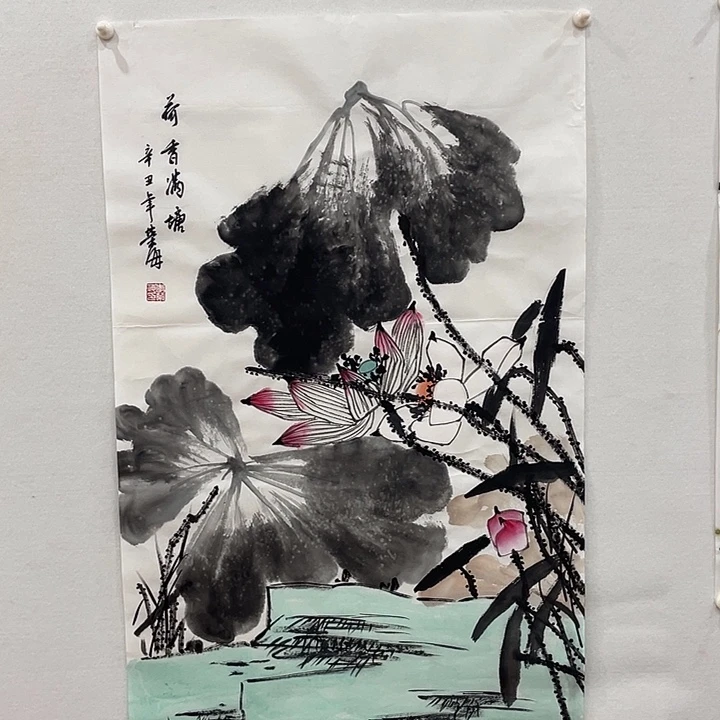 荷香满塘
辛丑年